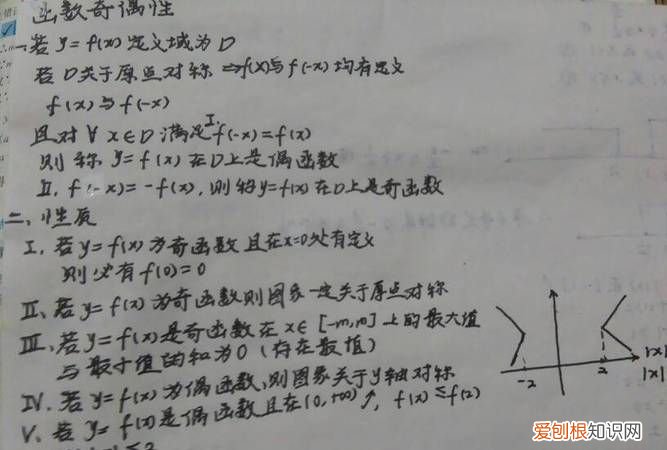 函数奇偶性
一若 y=f(x) 定义域为 D
若 D 关于原点对称 ⇒f(x)与f(-x)均有定义
f(x)与f(-x)
且对∀ x∈D 满足 I f(-x)=f(x)
则称 y=f(x) 在D上是偶函数
II. f(-x)= -f(x), 则称y=f(x)在D上是奇函数
二、性质
I. 若 y=f(x) 为奇函数且在x=0处有定义
则必有 f(0)=0
II、若 y=f(x) 为奇函数则图象一定关于原点对称
III、若 y=f(x)是奇函数在 x∈[-m,m] 上的最大值
与最小值的和为0 (存在最值)
IV. 若 y=f(x) 为偶函数,则图象关于y轴对称
V. 若 y=f(x)是偶函数且在(0,+∞)↑, f(x)≤f(2)
-2 2
|x|
|x|
爱刨根知识网